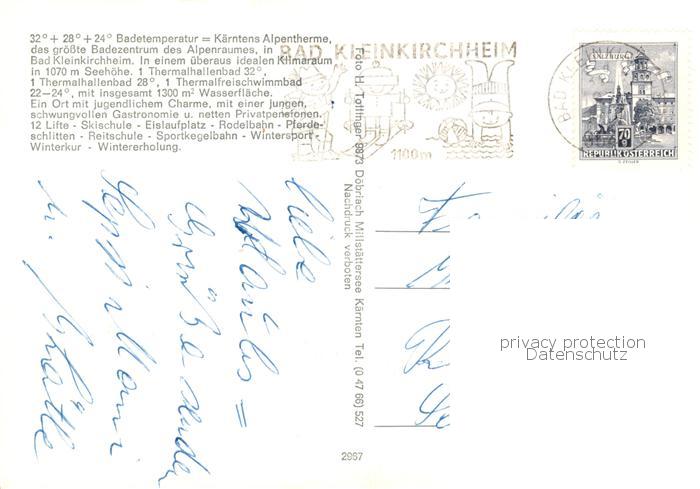 32° + 28° + 24° Badetemperatur = Kärntens Alpentherme,
das größte Badezentrum des Alpenraumes, in
Bad Kleinkirchheim. In einem überaus idealen Klimaraum
in 1070 m Seehöhe. 1 Thermalhallenbad 32°,
1 Thermalhallenbad 28°, 1 Thermalfreischwimmbad
22–24°, mit insgesamt 1300 m² Wasserfläche.
Ein Ort mit jugendlichem Charme, mit einer jungen,
schwungvollen Gastronomie u. netten Privatpensionen.
12 Lifte - Skischule - Eislaufplatz - Rodelbahn - Pferde-
schlitten - Reitschule - Sportkegelbahn - Wintersport -
Winterkur - Wintererholung.
BAD KLEINKIRCHHEIM
1100m
BAD KLEINKIR
SALZBURG
70 g
REPUBLIK ÖSTERREICH
Foto H. Tollinger 9873 Döbriach Millstättersee Kärnten Tel. (0 47 66) 527
Nachdruck verboten
Liebe
Urlaubs =
Grüße senden
Seppi Mami
u.
privacy protection
Datenschutz
2967